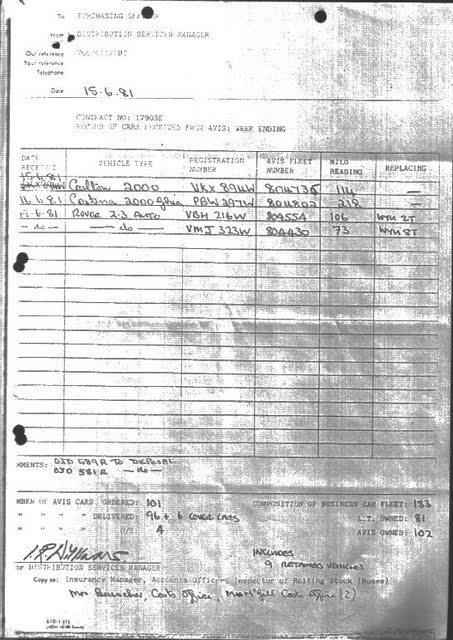 To PURCHASING OFFICER
From DISTRIBUTION SERVICES MANAGER
Our reference
Your reference
Telephone
Date 15.6.81
CONTRACT NO: 17903E
RECORD OF CARS RECEIVED FROM AVIS: WEEK ENDING
DATE RECEIVED VEHICLE TYPE REGISTRATION NUMBER AVIS FLEET NUMBER MILO READING REPLACING
15.6.81 Carlton 2000 VKX 894W 804735 114 —
16.6.81 Cortina 2000 Ghia PBW 297W 804802 218 —
17.6.81 Rover 2.3 AUTO VGH 216W 804554 106 WYH 2T
— do — — do — VMJ 323W 804430 73 WYH 8T
MMENTS: OJD 589R TO DISPOSAL
OJD 581R — do —
MBER OF AVIS CARS ORDERED: 101 COMPOSITION OF BUSINESS CAR FLEET: 183
" " " " DELIVERED: 96 + 6 COVER CARS L.T. OWNED: 81
" " " " O/S: 4 AVIS OWNED: 102
INCLUDES
9 RETAINED VEHICLES
or DISTRIBUTION SERVICES MANAGER
Copy to: Insurance Manager, Accounts Officer, Inspector of Rolling Stock (Buses)
Costs Office, Costs Office (2)